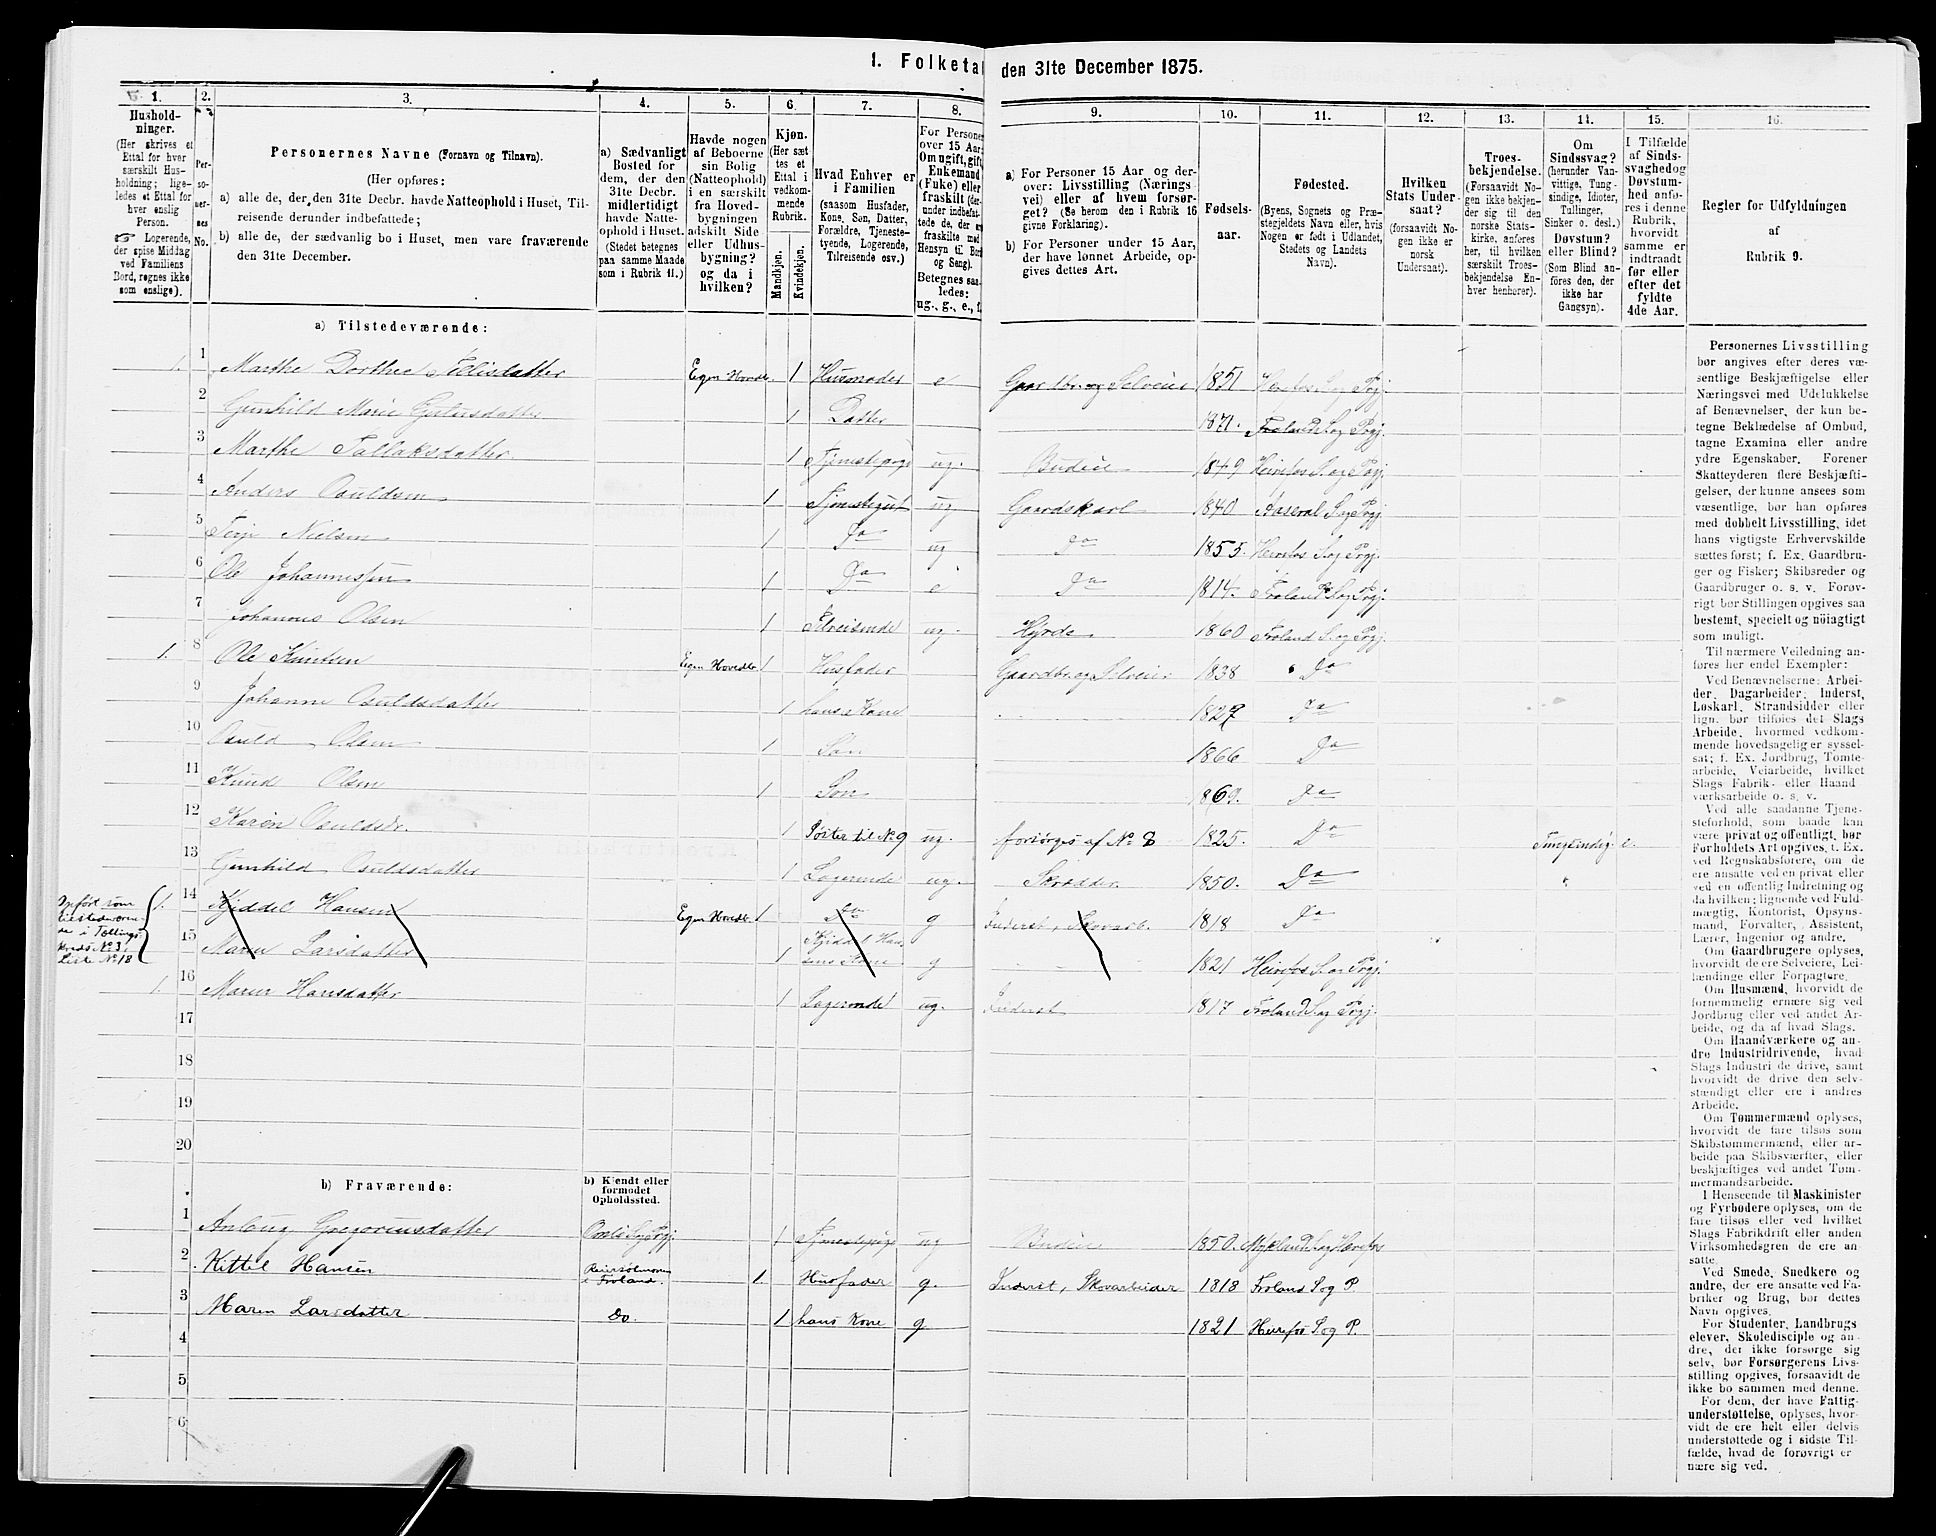 1. Folketal den 31te December 1875.
1. 2. 3. 4. 5. 6. 7. 8. 9. 10. 11. 12. 13. 14. 15. 16.
Hushold-
ninger.
(Her skrives et
Ettal for hver
særskilt Hus-
holdning; lige-
ledes et Ettal for
hver enslig
Person.
Logerende,
der spise Middag
ved Familiens
Bord, regnes ikke
som enslige).
Per-
so-
ner-
nes
No.
Personernes Navne (Fornavn og Tilnavn).
(Her opføres:
a) alle de, der, den 31te Decbr. havde Natteophold i Huset, Til-
reisende derunder indbefattede;
b) alle de, der sædvanlig bo i Huset, men vare fraværende
den 31te December.
a) Sædvanligt
Bosted for
dem, der den
31te Decbr.
midlertidigt
havde Natte-
ophold i Huset.
(Stedet betegnes
paa samme Maade
som i Rubrik 11.)
Havde nogen
af Beboerne
sin Bolig
(Natteophold)
i en særskilt
fra Hoved-
bygningen
adskilt Side-
eller Udhus-
bygning?
og da i
hvilken?
Kjøn.
(Her sæt-
tes et
Ettal i
vedkom-
mende
Rubrik.
Mandkjøn.
Kvindekjøn.
Hvad Enhver er
i Familien
(saasom Husfader,
Kone, Søn, Datter,
Forældre, Tjeneste-
tyende, Logerende,
Tilreisende osv.)
For Personer
over 15 Aar:
Om ugift, gift,
Enkemand
(Fuke) eller
fraskilt (der-
under indbefat-
tede de, der ere
fraskilte med
Hensyn til Bord
og Seng).
Betegnes saa-
ledes:
ug., g., e., f.
a) For Personer 15 Aar og der-
over: Livsstilling (Nærings-
vei) eller af hvem forsør-
get? (Se herom den i Rubrik 16
givne Forklaring).
b) For Personer under 15 Aar,
der have lønnet Arbeide, op-
gives dettes Art.
Fødsels-
aar.
Fødested.
(Byens, Sognets og Præ-
stegjeldets Navn eller, hvis
Nogen er født i Udlandet,
Stedets og Landets
Navn).
Hvilken
Stats Under-
saat?
(forsaavidt No-
gen ikke er
norsk
Undersaat).
Troes-
bekjendelse.
(Forsaavidt No-
gen ikke bekjen-
der sig til den
norske Stats-
kirke, anføres
her, til hvilken
særskilt Troes-
bekjendelse En-
hver henhører).
Om
Sindssvag?
(herunder Van-
vittige, Tung-
sindige, Idioter,
Tullinger,
Sinker o. desl.)
Døvstum?
eller Blind?
(Som Blind an-
føres den, der
ikke har
Gangsyn).
I Tilfælde
af Sinds-
svaghed og
Døvstum-
hed anfø-
res i denne
Rubrik,
hvorvidt
samme er
indtraadt
før eller
efter det
fyldte
4de Aar.
Regler for Udfyldningen
af
Rubrik 9.
a) Tilstedeværende:
1. 1 Marthe Dorthea Eegen Hovedb. 1 Husmoder e Gaardbr. og Selveier 1851
2 Gunhild Marie 1 Datter 1871. Froland S. og Prgj.
3 Marthe Tallaksdatter 1 Tjenestepige ug. Budeie 1849 Heirefos S. og Prgj.
4 Anders Osuldsen 1 Tjenestegut ug. Gaardskarl 1840 Aaseral S. og Prgj.
5 Terje Nielsen 1 Do ug Do 1855. Heirefos S. og Prgj.
6 Ole Johannessen 1 Do e Do 1814. Froland S. og Prgj.
7 Johannes Olsen 1 ug. Hyrde 1860 Froland S. og Prgj.
1. 8 Ole Knutsen Egen Hovedb. 1 Husfader Gaardbr. og Selveier 1838 Do
9 Johanne Osuldsdatter 1 hans Kone 1827 Do
10 Osuld Olsen 1 Søn 1866 Do
11 Knud Olsen 1 Søn 1869. Do
12 Karen Osuldsdr. 1 Søster til No 9 ug. forsørges af No 8 1825. Do Tungsindig e.
13 Gunhild Osuldsdatter 1 Logerende ug. Skrædder 1850. Do
Opført som
tilstedeværen-
de i Tællings-
kreds No 3,
Liste No 18
1. 14 Kjiddel Hansen Egen Hovedb. 1 Do g Inderst, Skovarb. 1818 Do
15 Maren Larsdatter 1 Kjiddel Han-
sens Kone g 1821 Heirefos S. og Prgj.
1. 16 Maren Hansdatter 1 Logerende ug. Inderst 1817 Froland S. og Prgj.
17
18
19
20
b) Fraværende:
b) Kjendt eller
formodet
Opholdssted.
1 Anlaug Gregoriusdatter 1 Tjenestepige ug Budeie 1850. Mykland S. og Herefos
2 Kittil Hansen
i Froland. 1 Husfader g. Inderst, Skovarbeider 1818 Froland S. og P.
3 Maren Larsdatter Do. 1 hans Kone g. 1821 Herefos S. og P.
4
5
6
Personernes Livsstilling
bør angives efter deres væ-
sentlige Beskjæftigelse eller
Næringsvei med Udelukkelse
af Benævnelser, der kun be-
tegne Beklædelse af Ombud,
tagne Examina eller andre
ydre Egenskaber. Forener
Skatteyderen flere Beskjæfti-
gelser, der kunne ansees som
væsentlige, bør han opføres
med dobbelt Livsstilling, idet
hans vigtigste Erhvervskilde
sættes først; f. Ex. Gaardbru-
ger og Fisker; Skibsreder og
Gaardbruger o. s. v. Forøv-
rigt bør Stillingen opgives saa
bestemt, specielt og nöiagtigt
som muligt.
Til nærmere Veiledning an-
føres her endel Exempler:
Ved Benævnelserne: Arbei-
der, Dagarbeider, Inderst,
Løskarl, Strandsidder eller
lign. bør tilføies det Slags
Arbeide, hvormed vedkom-
mende hovedsagelig er syssel-
sat; f. Ex. Jordbrug, Tomte-
arbeide, Veiarbeide, hvilket
Slags Fabrik- eller Haand-
værksarbeide o. s. v.
Ved alle saadanne Tjene-
steforhold, som baade kan
være privat og offentligt, bør
Forholdets Art opgives, t. Ex.
ved Regnskabsførere, om de
ere ansatte ved en privat eller
ved en offentlig Indretning og
da hvilken; lignende ved Fuld-
mægtig, Kontorist, Opsyns-
mand, Forvalter, Assistent,
Lærer, Ingeniør og andre.
Om Gaardbrugere oplyses,
hvorvidt de ere Selveiere, Lei-
lændinge eller Forpagtere.
Om Husmænd, hvorvidt de
fornemmelig ernære sig ved
Jordbrug eller ved andet Ar-
beide, og da af hvad Slags.
Om Haandværkere og an-
dre Industridrivende, hvad
Slags Industri de drive, samt
hvorvidt de drive den selv-
stændigt eller ere i andres
Arbeide.
Om Tømmermænd oplyses,
hvorvidt de fare tilsøs som
Skibstømmermænd, eller ar-
beide paa Skibsværfter, eller
beskjæftiges ved andet Tøm-
mermandsarbeide.
I Henseende til Maskinister
og Fyrbødere oplyses, om de
fare tilsøs eller ved hvilket
Slags Fabrikdrift eller anden
Virksomhedsgren de ere an-
satte.
Ved Smede, Snedkere og
andre, der ere ansatte ved Fa-
briker og Brug, bør dettes
Navn opgives.
For Studenter, Landbrugs-
elever, Skoledisciple og an-
dre, der ikke forsørge sig
selv, bør Forsørgerens Livs-
stilling opgives, forsaavidt de
ikke bo sammen med denne.
For dem, der have Fattig-
understøttelse, oplyses, hvor-
vidt de ere helt eller delvis
understøttede og i sidste Til-
fælde, hvad de forøvrigt er-
nære sig ved.